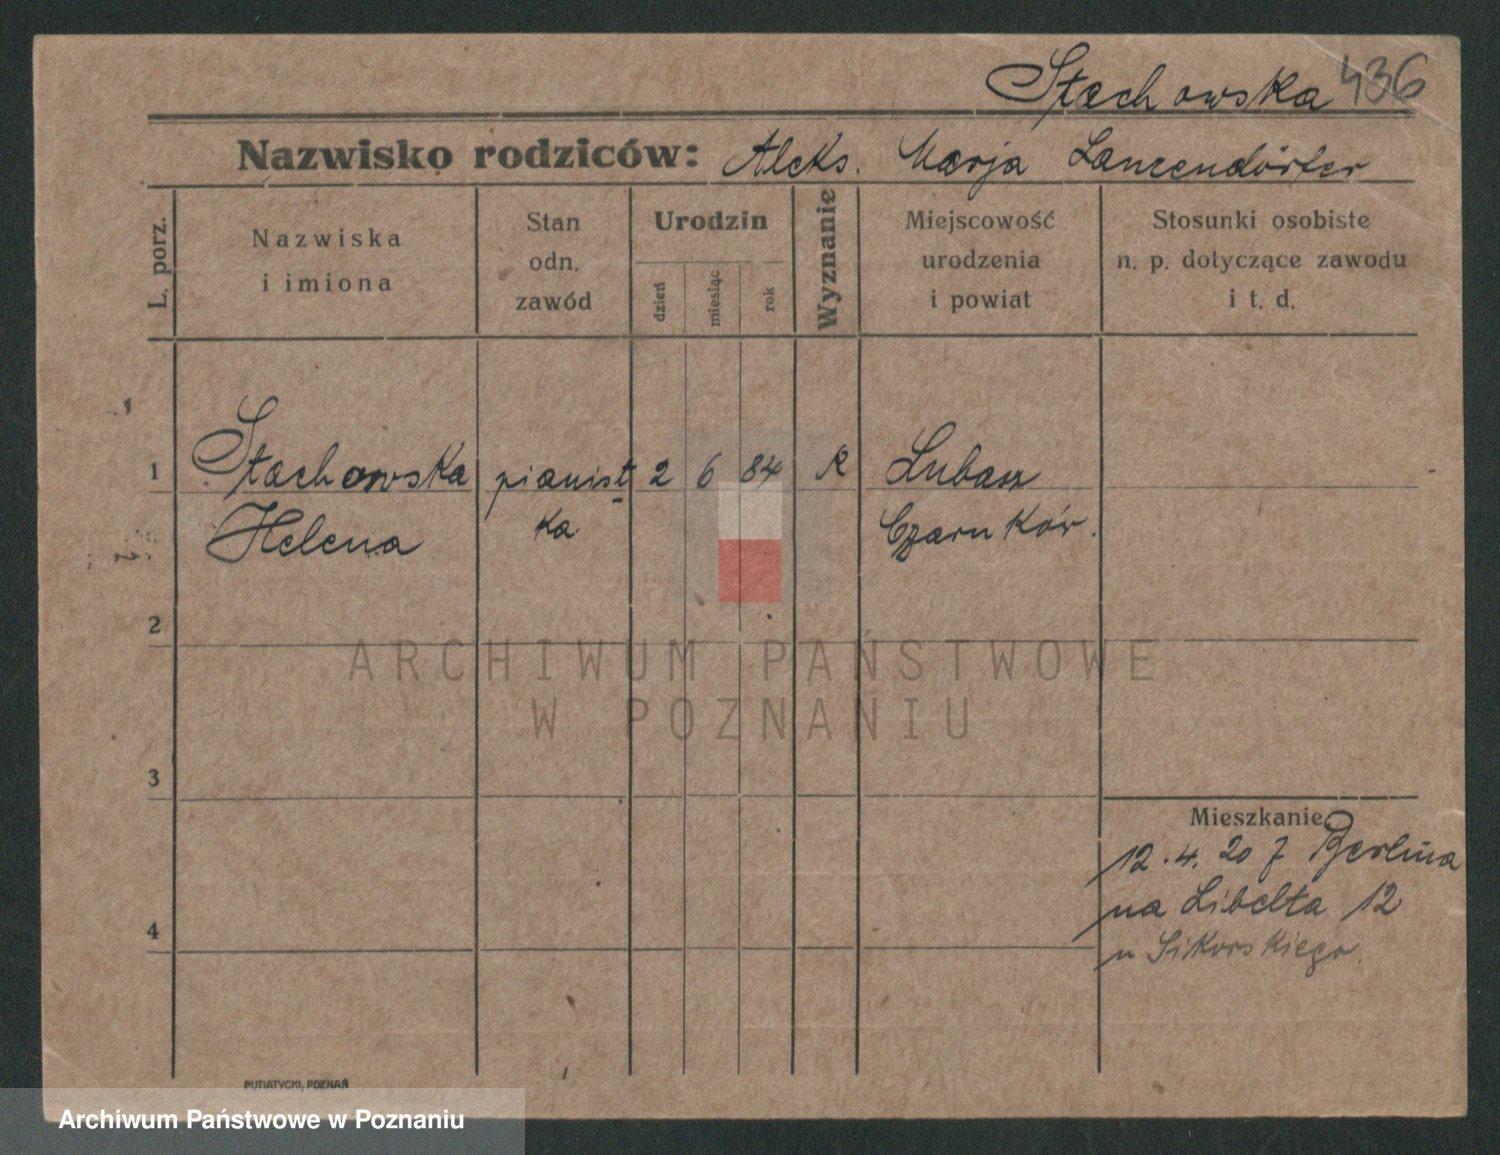 Stachowska 436
Nazwisko rodziców: Aleks. Marja Lancendörfer
L. porz.
Nazwiska
i imiona
Stan
odn.
zawód
Urodzin
dzień
miesiąc
rok
Wyznanie
Miejscowość
urodzenia
i powiat
Stosunki osobiste
n. p. dotyczące zawodu
i t. d.
1
Stachowska pianist 2 6 84 k Lubasz
Helena ka Czarnków.
2
3
4
Mieszkanie
12.4.20 z Berlina
na Libelta 12
u Sikorskiego.
PUTIATYCKI, POZNAŃ
ARCHIWUM PAŃSTWOWE
W POZNANIU
Archiwum Państwowe w Poznaniu